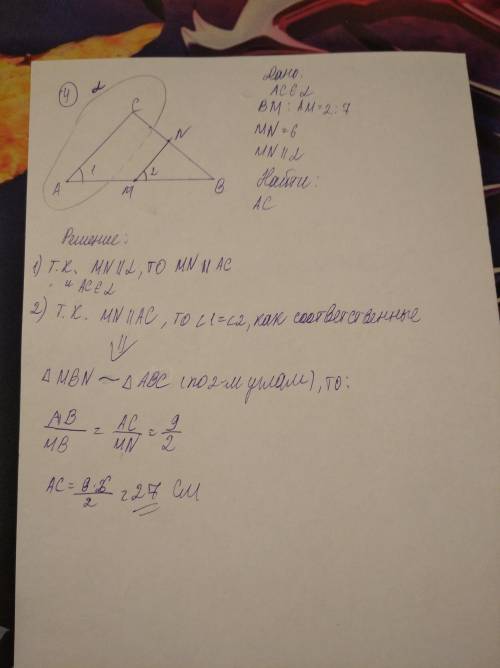 4
α
C
N
A 1 M 2 B
Дано:
AC∈α
BM : AM = 2 : 7
MN = 6
MN || α
Найти:
AC
Решение:
1) т.к. MN || α, то MN || AC
и AC∈α
2) т.к. MN || AC, то ∠1=∠2, как соответственные
⇓
△ MBN ~ △ ABC (по 2-м углам), то:
AB/MB = AC/MN = 9/2
AC = 9·6/2 = 27 см